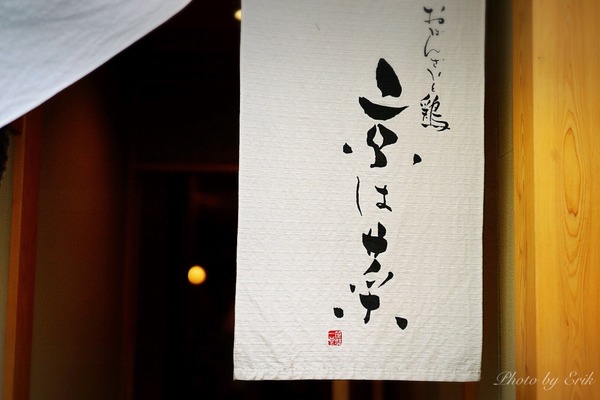 おばんざいと鶏
京は菜
Photo by Erik